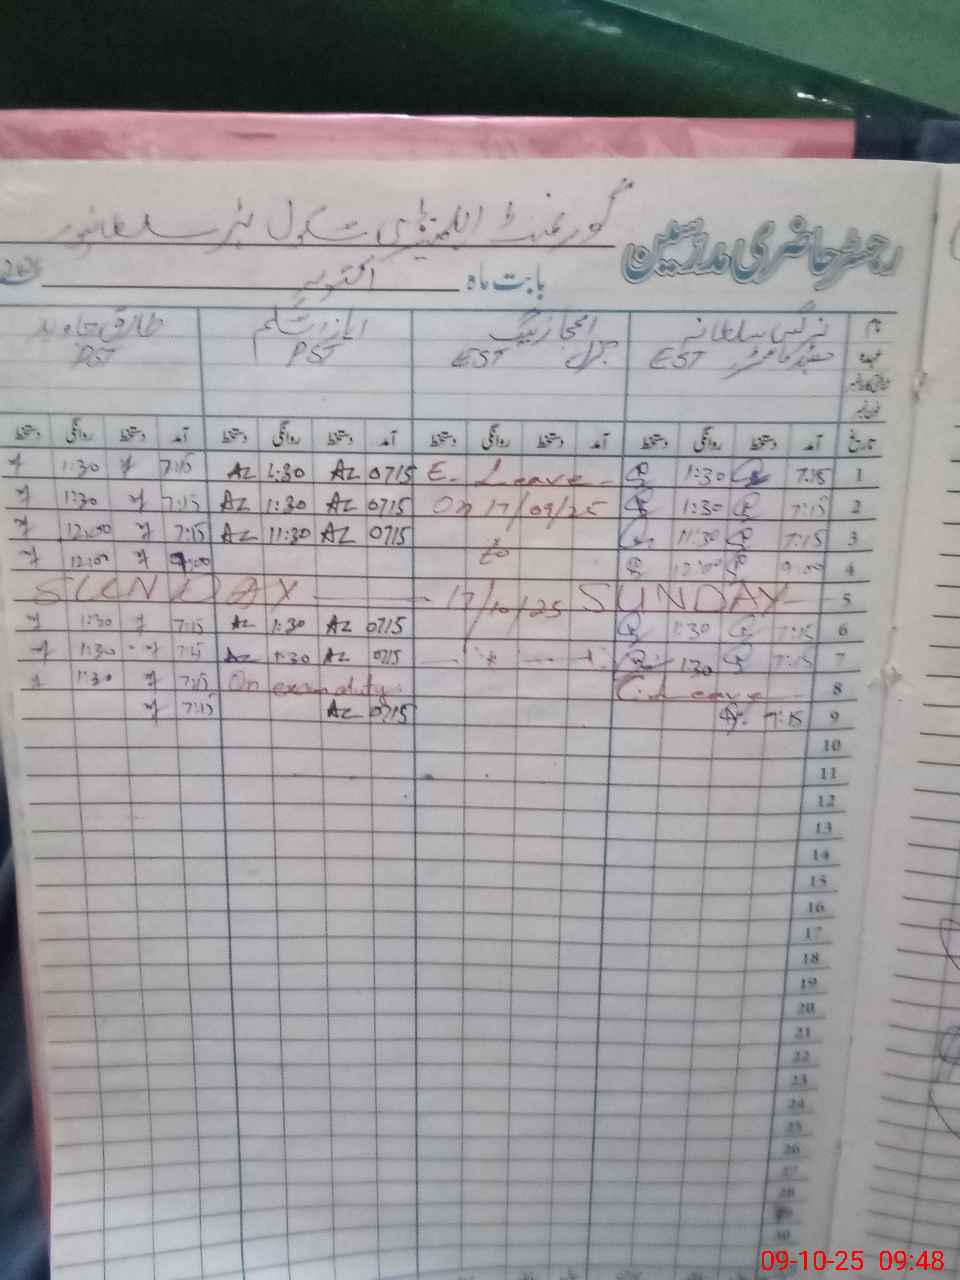 رجسٹر حاضری مدرسین گورنمنٹ ایلیمنٹری سکول
بابت ماہ اکتوبر
نام نرگس سلطانہ اعجاز بیگ ایاز اسلم طارق جاوید
عہدہ EST EST PST PST
تاریخ آمد دستخط روانگی دستخط آمد دستخط روانگی دستخط آمد دستخط روانگی دستخط آمد دستخط روانگی دستخط
1 7:15 1:30 E. Leave 0715 AZ 1:30 AZ 7:15 1:30
2 7:15 1:30 On 17/09/25 0715 AZ 1:30 AZ 7:15 1:30
3 7:15 11:30 to 0715 AZ 11:30 AZ 7:15 12:00
4 9:00 12:00 9:00 12:00
5 SUNDAY 17/10/25 SUNDAY
6 7:15 1:30 0715 AZ 1:30 AZ 7:15 1:30
7 7:15 1:30 0715 AZ 1:30 AZ 7:15 1:30
8 C. Leave On exam duty 7:15 1:30
9 7:15 0715 AZ 7:15
10
11
12
13
14
15
16
17
18
19
20
21
22
23
24
25
26
27
28
29
30
09-10-25 09:48